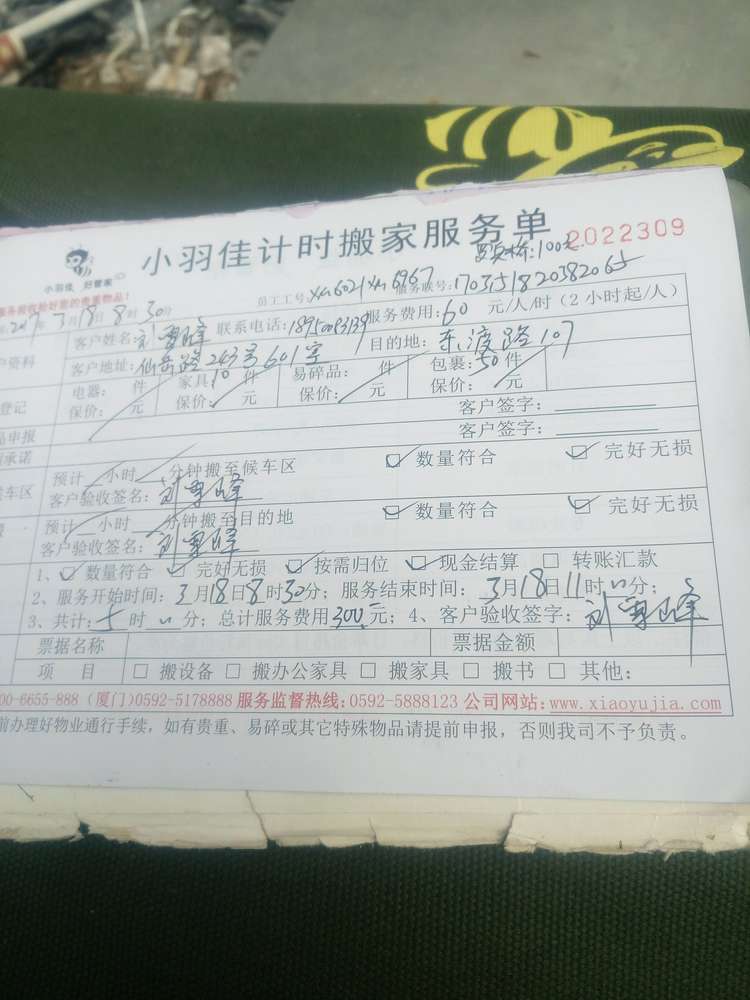 小羽佳计时搬家服务单
小羽佳 好管家
2022309
服务验收给好您的贵重物品!
员工工号: xm6021 xm6967 服务联号: 1703151820382065
3月18日8时30分
客户姓名: 联系电话: 18950083139 服务费用: 60 元/人/时(2小时起/人)
户资料
客户地址: 仙岳路243号601室 目的地: 东渡路107
电器: 件 家具: 10件 易碎品: 件 包裹: 50件
登记
保价: 元 保价: 元 保价: 元 保价: 元
客户签字:
品申报
客户签字:
承诺
预计 小时 分钟搬至候车区 数量符合 完好无损
车区
客户验收签名:
预计 小时 分钟搬至目的地 数量符合 完好无损
客户验收签名:
1、 数量符合 完好无损 按需归位 现金结算 转账汇款
2、服务开始时间: 3月18日8时30分; 服务结束时间: 3月18日11时 分;
3、共计: 5时 分; 总计服务费用300元; 4、客户验收签字:
票据名称 票据金额
项 目 搬设备 搬办公家具 搬家具 搬书 其他:
00-6655-888 (厦门)0592-5178888 服务监督热线:0592-5888123 公司网站:www.xiaoyujia.com
前办理好物业通行手续, 如有贵重、易碎或其它特殊物品请提前申报, 否则我司不予负责。